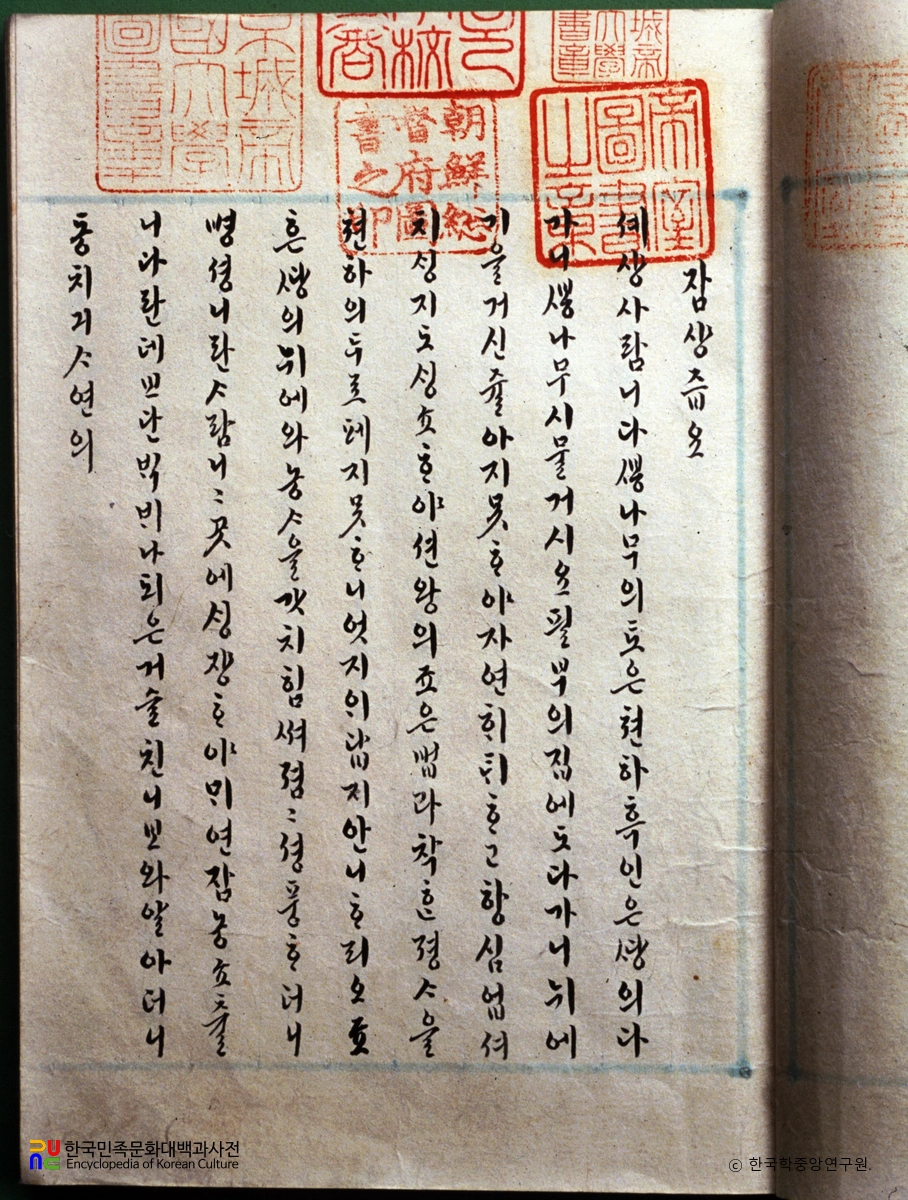 帝室圖書之章
朝鮮總督府圖書之印
京城帝國大學圖書章
잠상즙요
셰상사람니다쌩나무의됴은쳔하흑인은의다
가니쌩나무시물거시요필부의집에도다가니뉘에
기울거신쥴아지못ᄒᆞ야자연희틔ᄒᆞ고항심업셔
치싱지도싱쇼ᄒᆞ야션왕의죠은법과착ᄒᆞᆫ졍ᄉᆞ을
쳔하의두르페지못ᄒᆞ니엇지의답지안니ᄒᆞ리오죠
흔의뉘에와농ᄉᆞ을갓치힘쎠졈〻셩풍ᄒᆞ더니
병셩니란ᄉᆞ람니〻곳에싱장ᄒᆞ야민연잠농쇼츌
니다란데보단빅비나되은거슬친니보와알아더니
동치긔ᄉᆞ연의
한국민족문화대백과사전
Encyclopedia of Korean Culture
© 한국학중앙연구원.